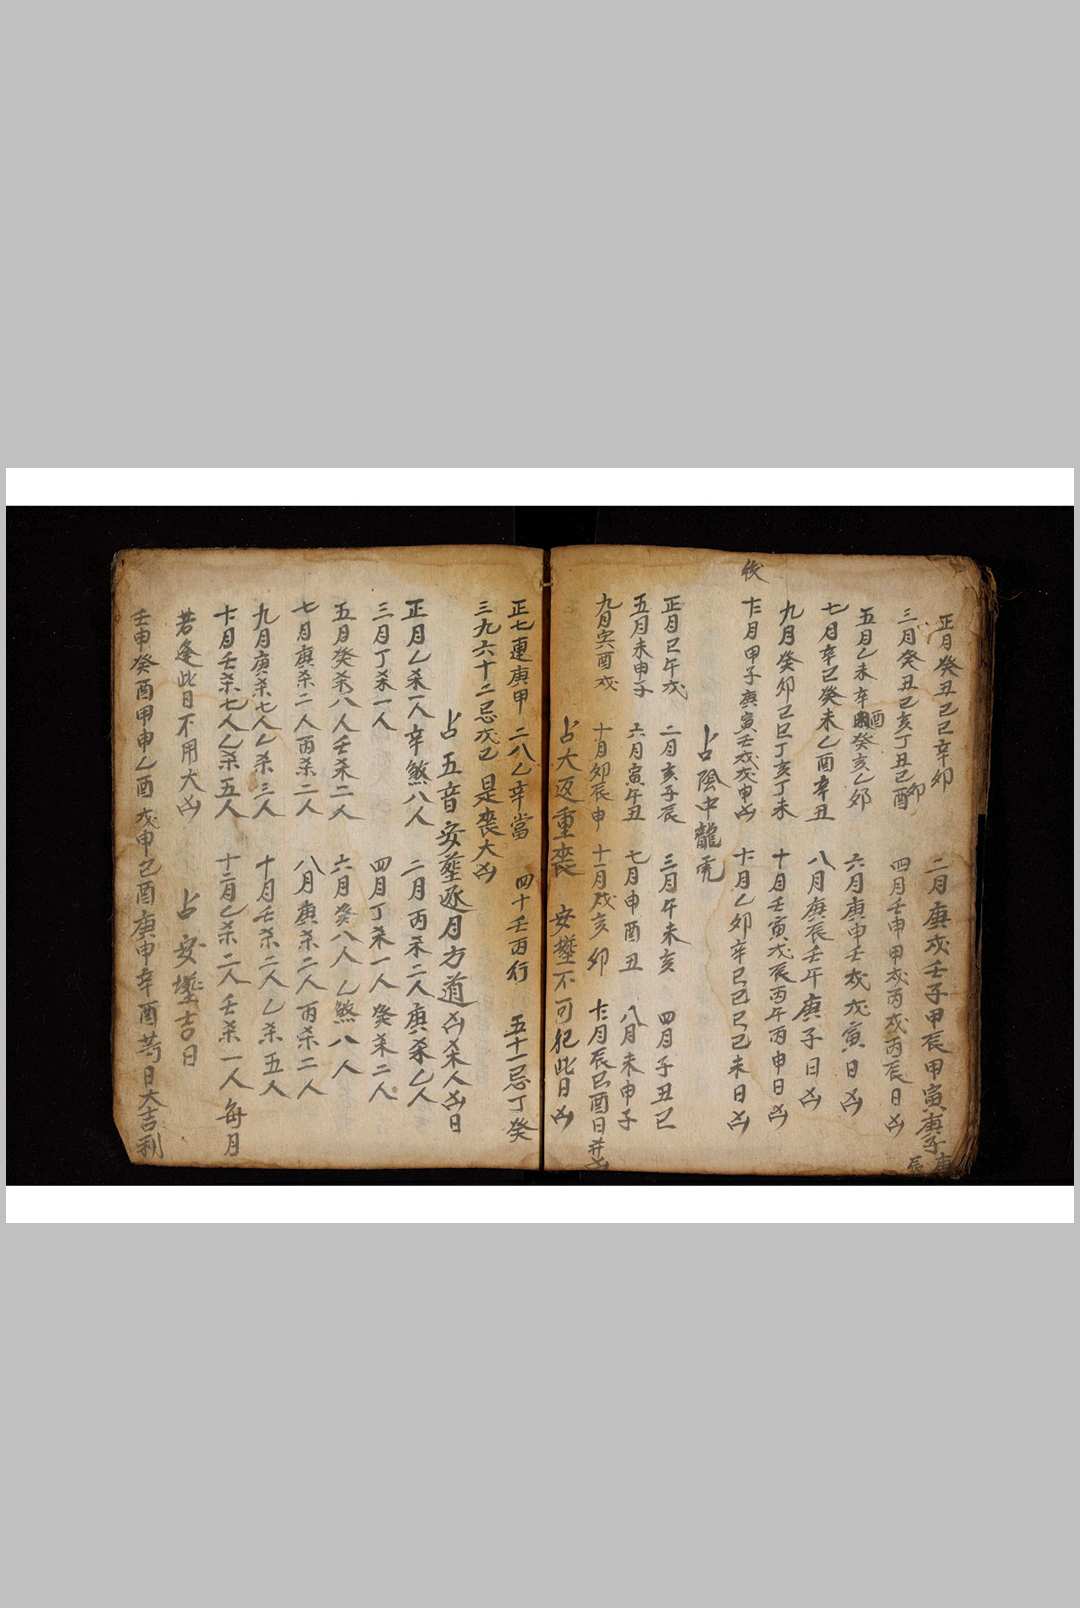 正月癸丑己巳辛卯 二月庚戌壬子甲辰甲寅庚子庚辰
三月癸丑己亥丁丑己酉卯 四月壬申甲戌丙戌丙辰日凶
五月乙未辛酉癸亥乙卯 六月庚申壬戌戊寅日凶
七月辛巳癸未乙酉辛丑 八月庚辰壬午庚子日凶
九月癸卯己巳丁亥丁未 十月壬寅戊辰丙午丙申日凶
十二月甲子庚寅壬戌戊申凶 十一月乙卯辛巳己巳己未日凶
後
占陰中龍虎
正月巳午戌 二月亥子辰 三月午未亥 四月子丑巳
五月未申子 六月寅午丑 七月申酉丑 八月未申子
九月寅酉戌 十月卯辰申 十一月戌亥卯 十二月辰巳酉日并凶
占大返重喪 安塟不可犯此日凶
正七連庚甲 二八乙辛當 四十壬丙行 五十一忌丁癸
三九六十二忌戊己 是喪大凶
占五音安塟逐月方道凶杀人凶日
正月乙杀一人辛煞八人 二月丙杀二人庚杀乙人
三月丁杀一人 四月丁杀一人癸杀二人
五月癸杀八人壬杀二人 六月癸八人乙煞八人
七月庚杀二人丙杀二人 八月庚杀二人丙杀二人
九月庚杀七人乙杀三人 十月壬杀二人乙杀五人
十一月壬杀七人乙杀五人 十二月乙杀二人壬杀一人每月
若逢此日不用大凶 占安塟吉日
壬申癸酉甲申乙酉戊申己酉庚申辛酉等日大吉利